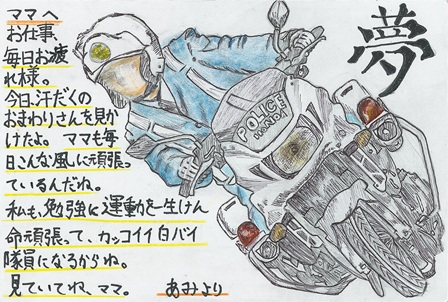 ママへ
お仕事、
毎日お疲
れ様。
今日、汗だくの
おまわりさんを見か
けたよ。ママも毎
日こんな風に頑張っ
ているんだね。
私も、勉強に運動を一生けん
命頑張って、カッコイイ白バイ
隊員になるからね。
見ていてね、ママ。
あみより
夢
POLICE